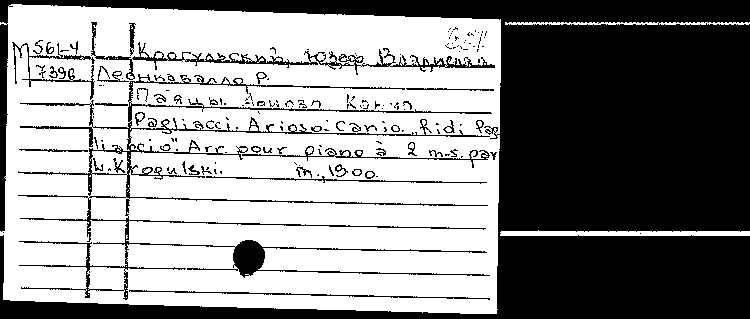 М 561-4 Крогульский, Юзеф Владислав
7396 Леонкавалло, Р.
Паяцы. Ариозо Канио.
Pagliacci. Arioso. Canio. „Ridi Pag
liaccio". Arr. pour piano à 2 m-s. par
W. Krogulski. m., 1900